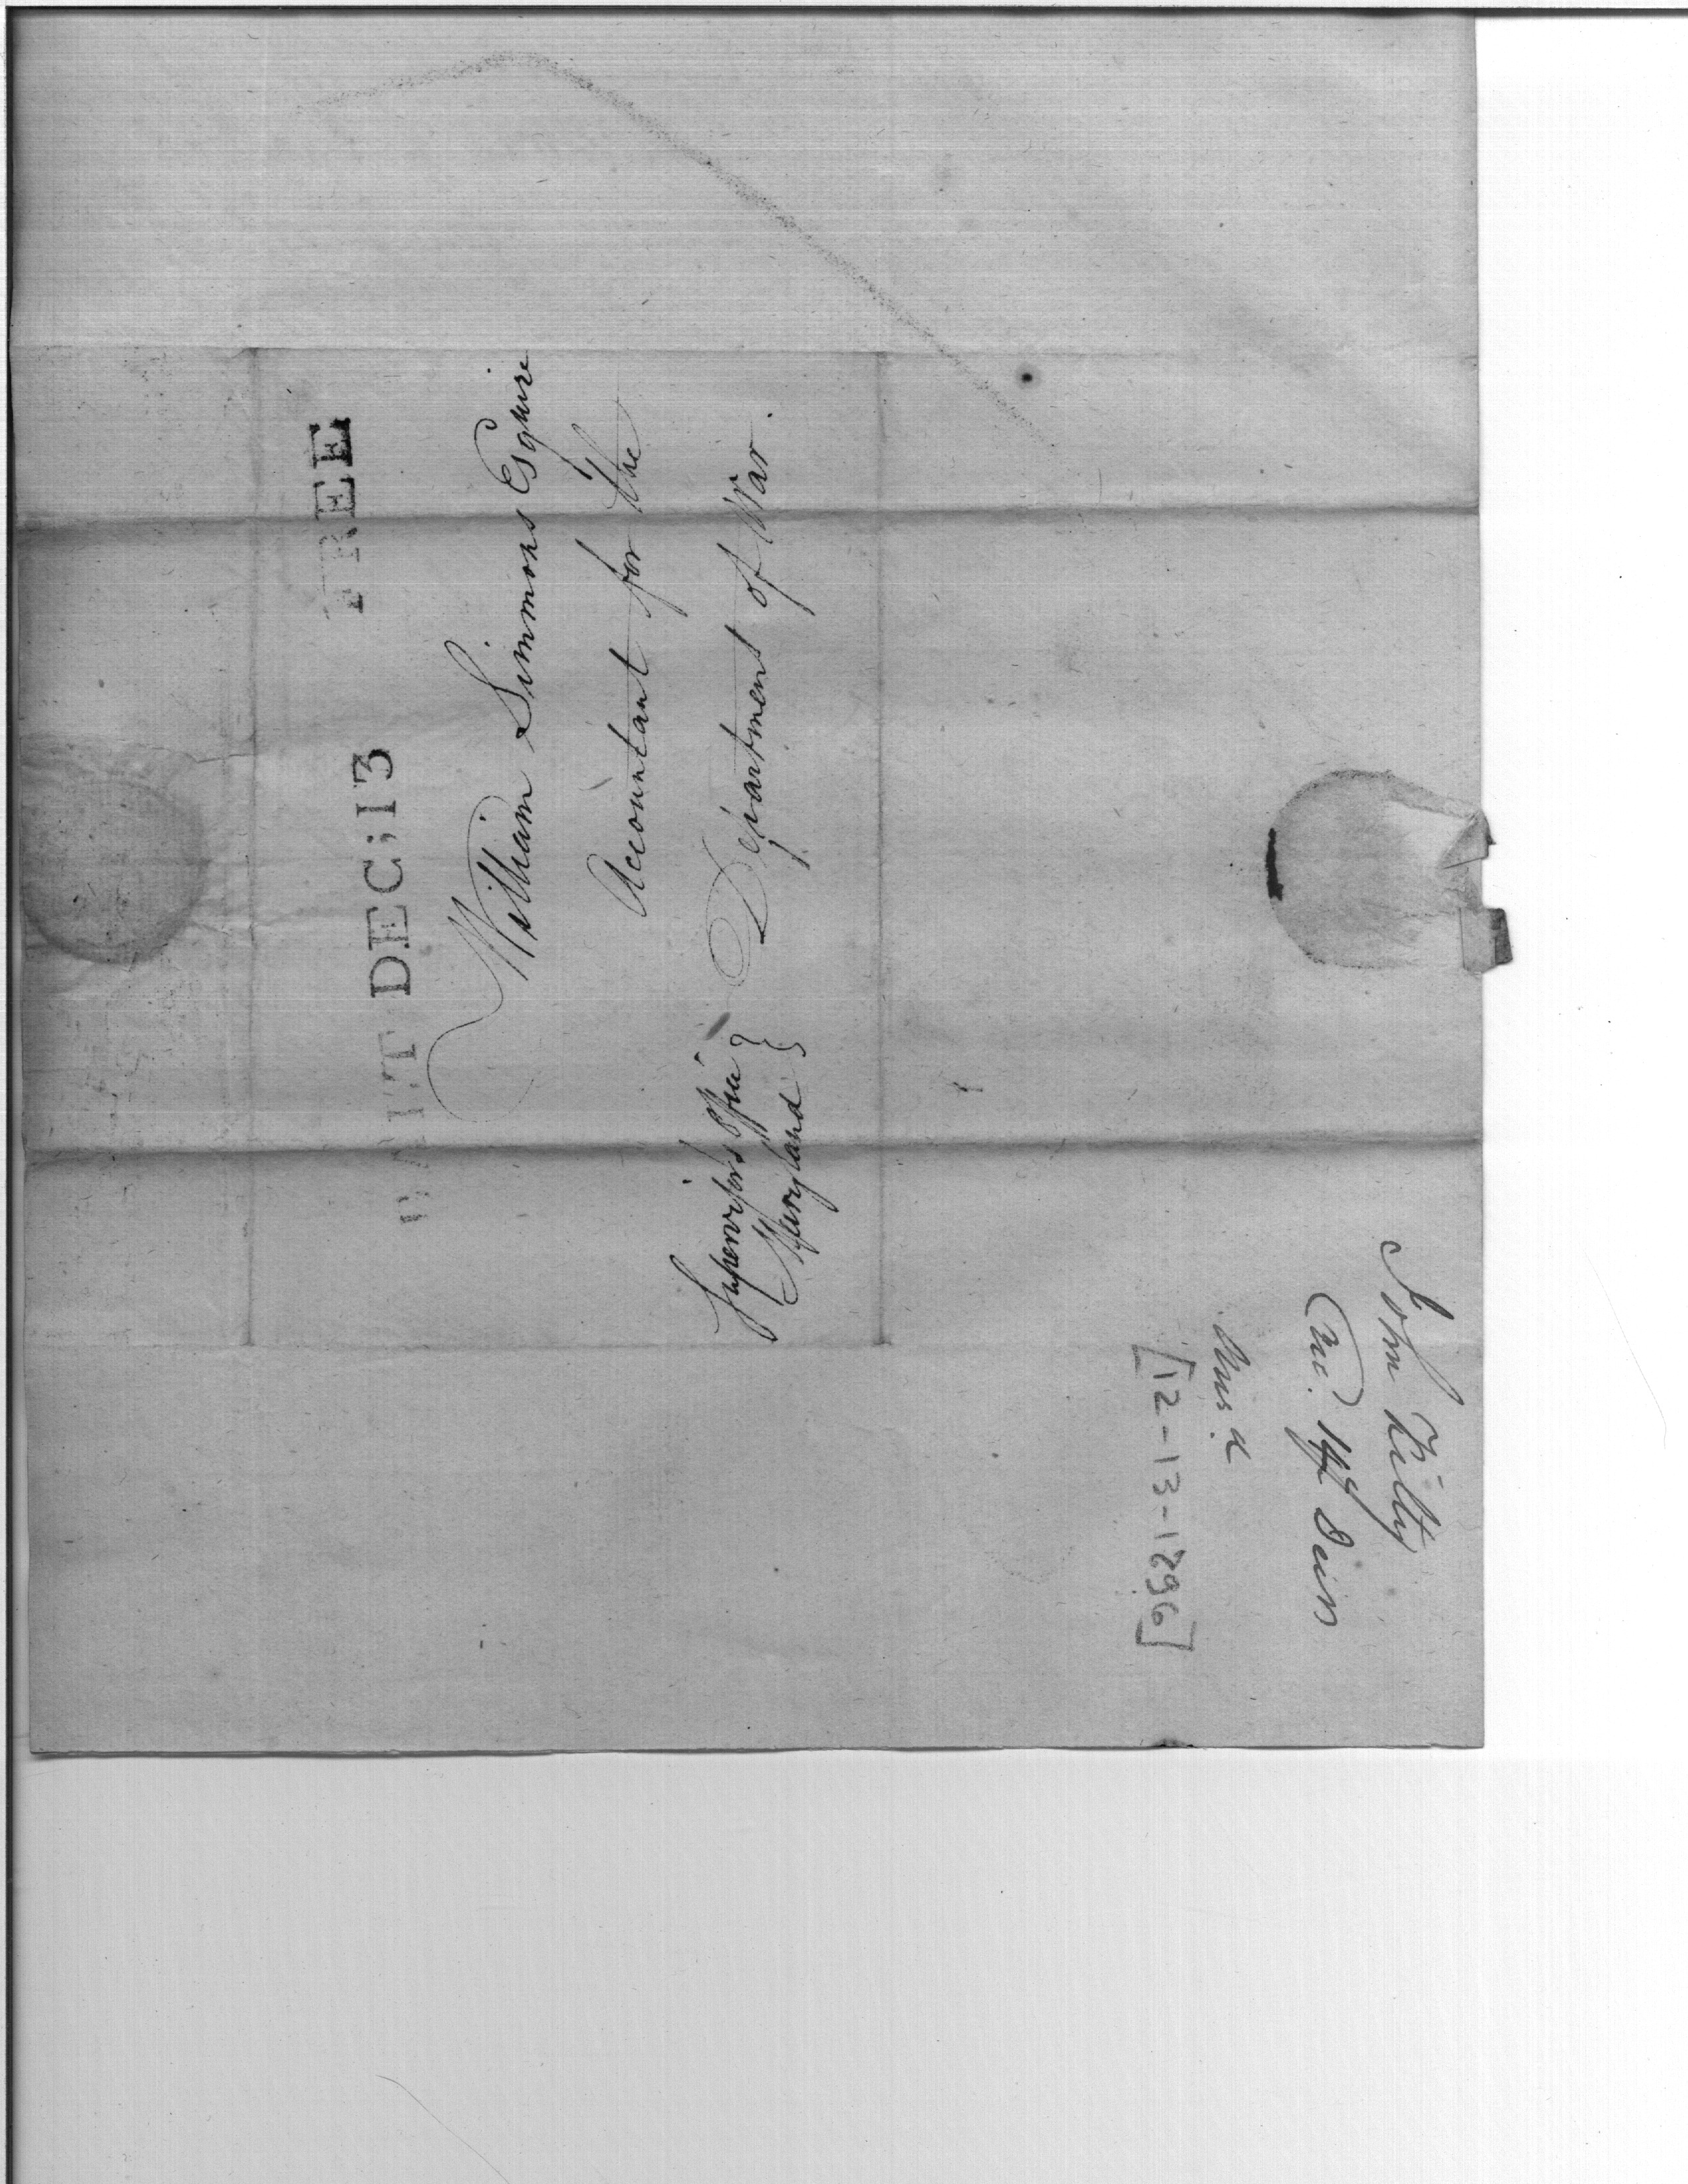 FREE
BALT DEC; 13
William Simmons Esquire
Accountant for the
Department of War.
Supervisors Office }
Maryland }
John Kilty
14
[12-13-1796]